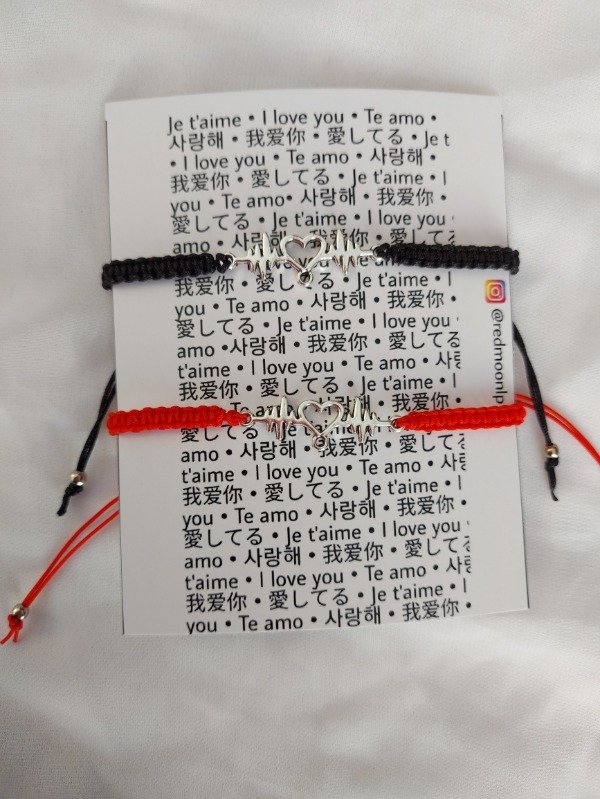 Je t'aime • I love you • Te amo •
사랑해 • 我爱你 • 愛してる • Je t
• I love you • Te amo • 사랑해 •
我爱你 • 愛してる • Je t'aime • I
you • Te amo• 사랑해 • 我爱你 •
愛してる • Je t'aime • I love you
amo • 사랑해
love you
我爱你 • 愛し Je t'aime • I
you • Te amo • 사랑해 • 我爱你 •
愛してる • Je t'aime • I love you
amo •사랑해 • 我爱你 • 愛してる
t'aime • I love you • Te amo • 사랑
我爱你 • 愛してる • Je t'aime • I
you • Te 我爱你 •
愛してる
amo • 사랑해 • 我爱你 • 愛して
t'aime • I love you • Te amo • 사랑
我爱你 • 愛してる • Je t'aime • I
you • Te amo • 사랑해 • 我爱你
愛してる • Je t'aime • I love you
amo • 사랑해 • 我爱你 • 愛して
t'aime • I love you • Te amo • 사랑
我爱你 • 愛してる • Je t'aime • I
you • Te amo • 사랑해 • 我爱你 •
@redmoonlp